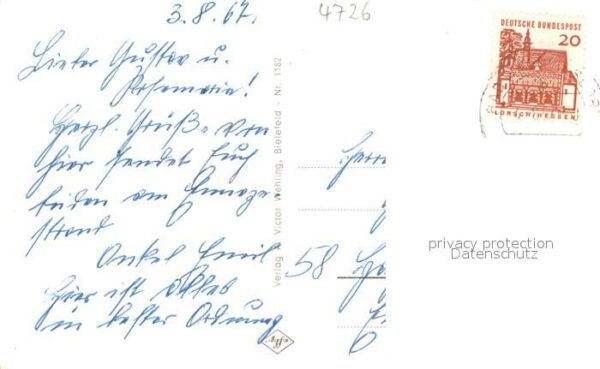 3.8.67.
4726
Lieber Gustav u.
Rosemarie!
Herzl. Grüße von
hier sendet Euch
beiden am
strand
Onkel Emil
Hier ist alles
in bester Ordnung
Verlag Victor Wehling, Bielefeld - Nr. 1182
Herrn
58
DEUTSCHE BUNDESPOST
20
LORSCH/HESSEN
privacy protection
Datenschutz